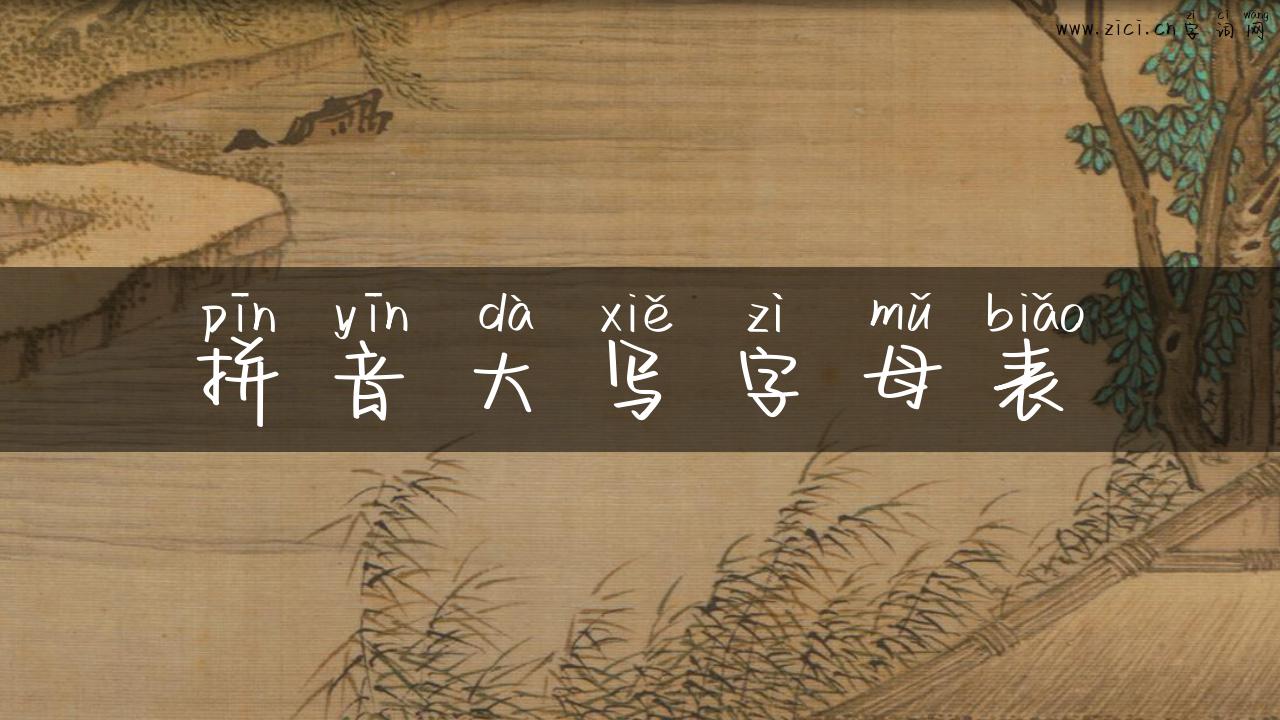 zì cí wǎng
www.zici.cn字词网
pīn yīn dà xiě zì mǔ biǎo
拼音大写字母表